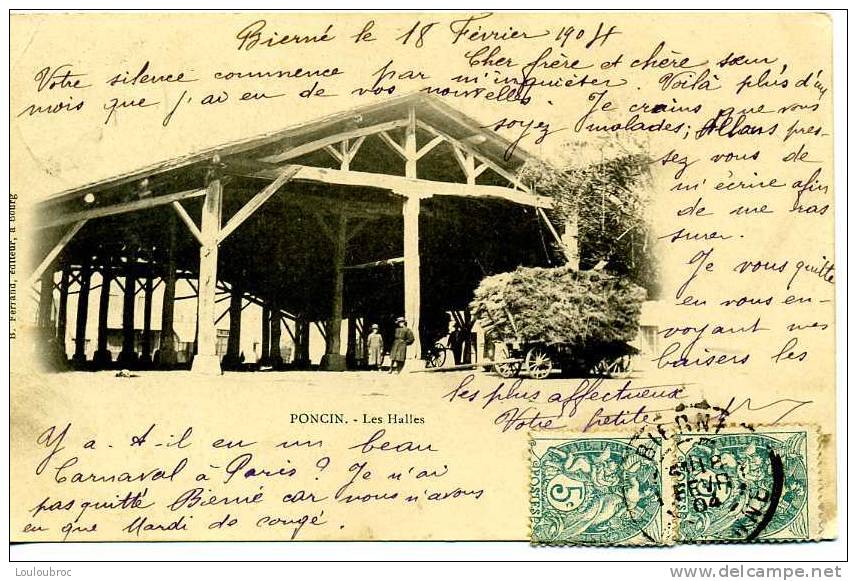 Bierné le 18 Février 1904
Cher frère et chère sœur,
Votre silence commence par m'inquiéter. Voilà plus d'un
mois que j'ai eu de vos nouvelles. Je crains que vous
soyez malades; Allons pres-
sez vous de
m'écrire afin
de me ras
surer.
Je vous quitte
en vous en-
voyant mes
baisers les
les plus affectueux
Votre petite
B. Ferrand, éditeur, à Bourg
PONCIN. - Les Halles
Y a-t-il eu un beau
Carnaval à Paris? Je n'ai
pas quitté Bierné car nous n'avons
eu que Mardi de congé.
5c
BIERNÉ
18
FEVR
04